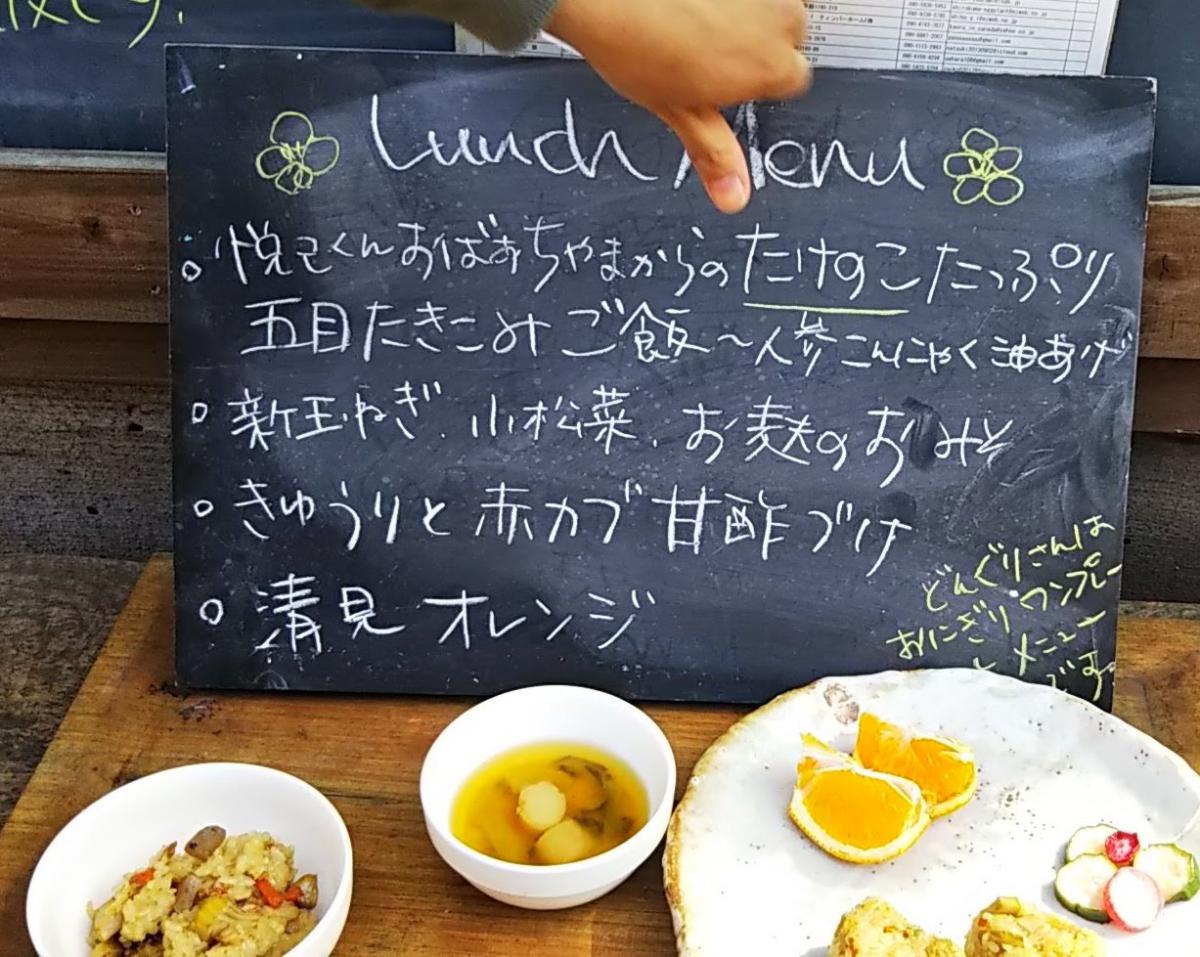 Lunch Menu
。悦己くんおばあちゃまからのたけのこたっぷり
五目たきこみご飯〜人参こんにゃく油あげ
。新玉ねぎ、小松菜、お麩のおみそ
。きゅうりと赤カブ甘酢づけ
。清見オレンジ
どんぐりさんは
おにぎりワンプレー
トメニュー
です。